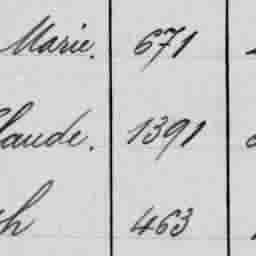 Marie. 671
laude. 1391
h 463